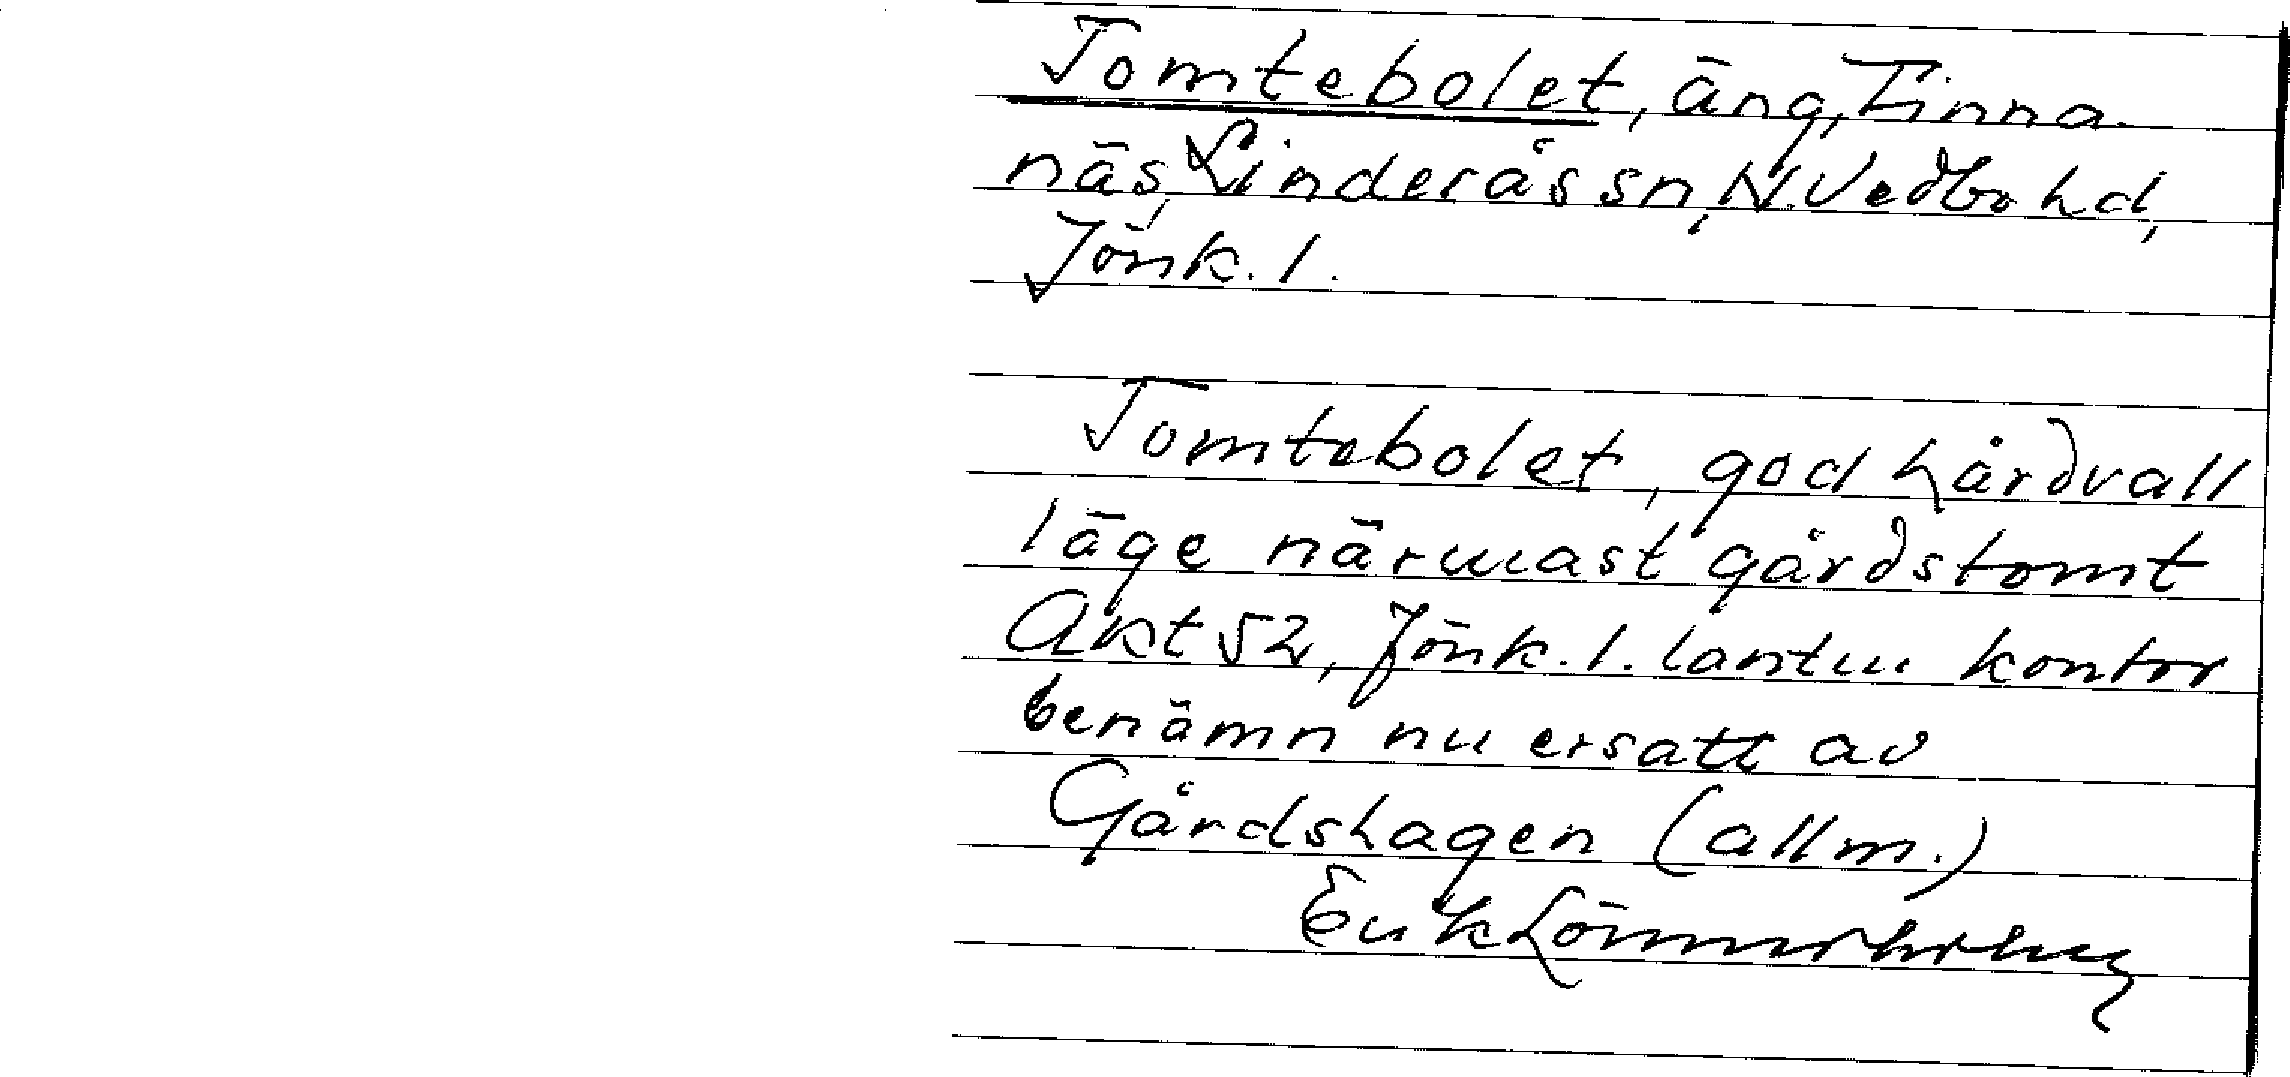 Tomtebolet, äng, Finna-
näs, Linderås sn, N. Vedbo hd,
Jönk. l.
Tomtebolet, god hårdvall
läge närmast gårdstomt
Akt 52, Jönk. l. lantm. kontor
benämn nu ersatt av
Gårdshagen (allm.)
Erik